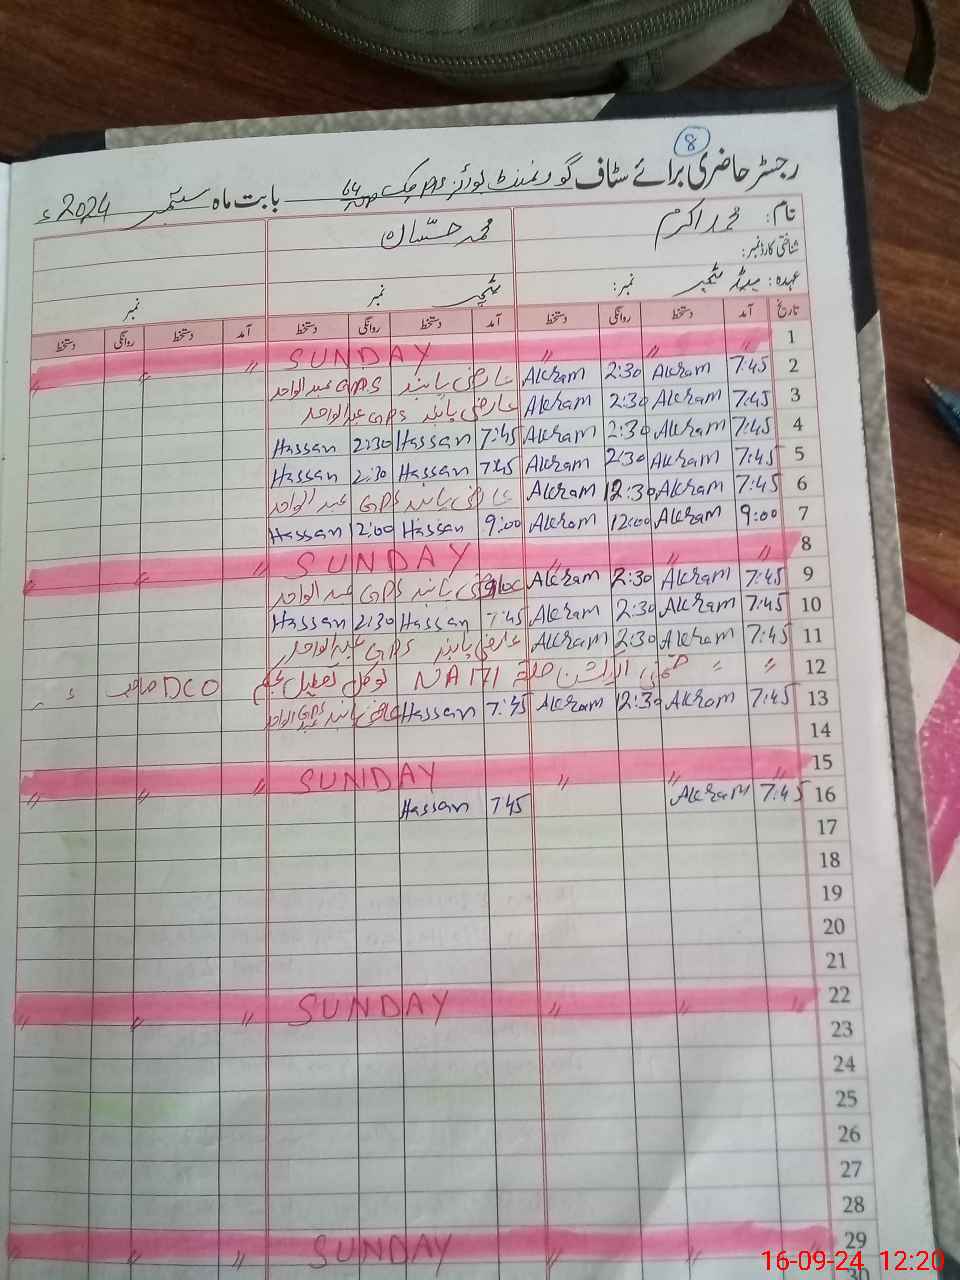 8
رجسٹر حاضری برائے سٹاف گورنمنٹ بوائز چک 64 بابت ماہ ستمبر 2024ء
نام: محمد اکرم محمد حسان
شناختی کارڈ نمبر:
عہدہ: ہیڈ ٹیچر نمبر: ٹیچر نمبر نمبر
تاریخ آمد دستخط روانگی دستخط آمد دستخط روانگی دستخط آمد دستخط روانگی دستخط
1 〃 〃 SUNDAY 〃 〃 〃
2 7:45 Akram 2:30 Akram عارضی پابند GPS عبدالواحد
3 7:45 Akram 2:30 Akram عارضی پابند GPS عبدالواحد
4 7:45 Akram 2:30 Akram 7:45 Hassan 2:30 Hassan
5 7:45 Akram 2:30 Akram 7:45 Hassan 2:30 Hassan
6 7:45 Akram 12:30 Akram عارضی پابند GPS عبدالواحد
7 9:00 Akram 12:00 Akram 9:00 Hassan 12:00 Hassan
8 〃 〃 〃 SUNDAY 〃 〃 〃
9 7:45 Akram 2:30 Akram عارضی پابند GPS عبدالواحد
10 7:45 Akram 2:30 Akram 7:45 Hassan 2:30 Hassan
11 7:45 Akram 2:30 Akram عارضی پابند GPS عبدالواحد
12 〃 〃 ضمنی الیکشن حلقہ NA 171 لوکل تعطیل بحکم DCO صاحب 〃
13 7:45 Akram 12:30 Akram 7:45 Hassan عارضی پابند GPS عبدالواحد
14
15 〃 〃 〃 SUNDAY 〃 〃 〃
16 7:45 Akram 7:45 Hassan
17
18
19
20
21
22 〃 〃 〃 SUNDAY 〃 〃 〃
23
24
25
26
27
28
29 〃 〃 〃 SUNDAY 〃 〃 〃
30
16-09-24 12:20